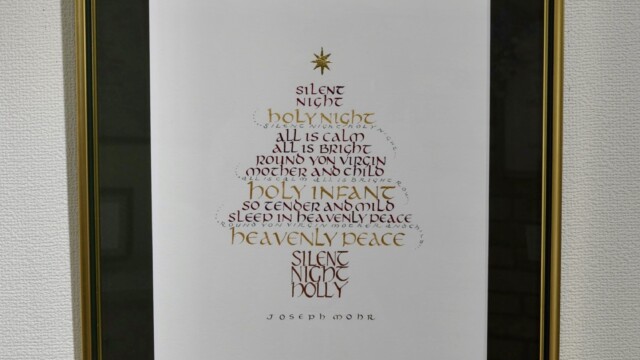 SILENT
NIGHT
HOLY NIGHT
SILENT NIGHT HOLY NIGHT
ALL IS CALM
ALL IS BRIGHT
ROUND YON VIRGIN
MOTHER AND CHILD
ALL IS CALM ALL IS BRIGHT
HOLY INFANT
SO TENDER AND MILD
SLEEP IN HEAVENLY PEACE
ROUND YON VIRGIN MOTHER AND
HEAVENLY PEACE
SILENT
NIGHT
HOLLY
JOSEPH MOHR